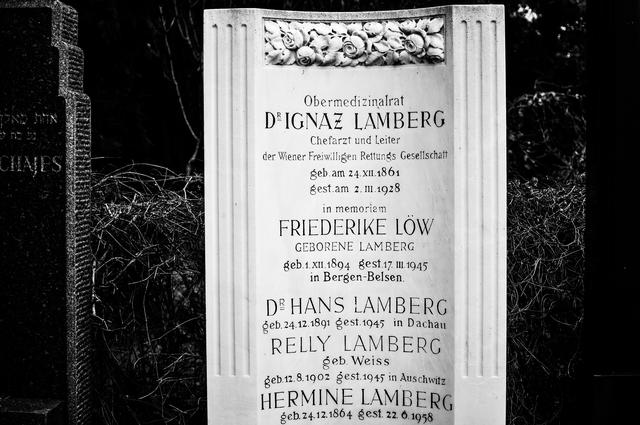 CHAJES
Obermedizinalrat
DR IGNAZ LAMBERG
Chefarzt und Leiter
der Wiener Freiwilligen Rettungs Gesellschaft
geb. am 24. XII. 1861
gest. am 2. III. 1928
in memoriam
FRIEDERIKE LÖW
GEBORENE LAMBERG
geb. 1. XII. 1894 gest. 17. III. 1945
in Bergen-Belsen.
DR HANS LAMBERG
geb. 24. 12. 1891 gest. 1945 in Dachau
RELLY LAMBERG
geb. Weiss
geb. 12. 8. 1902 gest. 1945 in Auschwitz
HERMINE LAMBERG
geb. 24. 12. 1864 gest. 22. 6. 1958